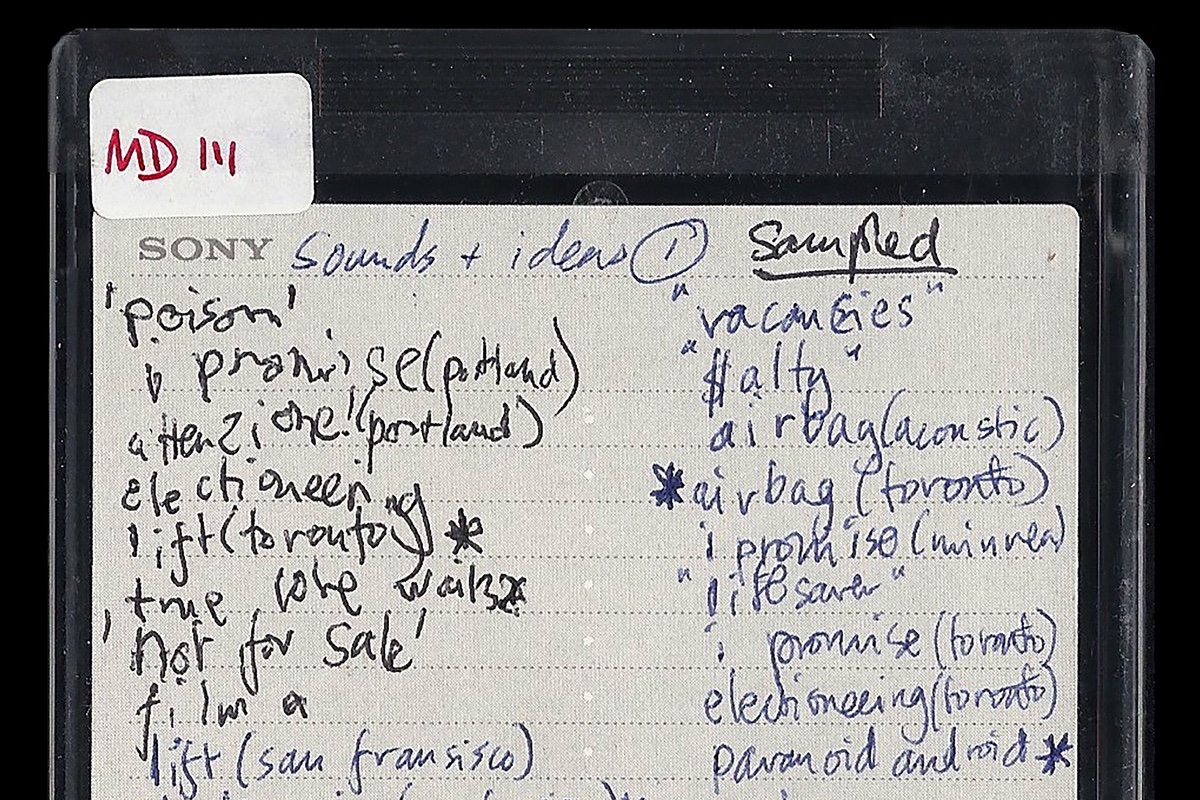 MD 111
SONY Sounds + ideas ① Sampled
'poison'
i promise (portland)
attenzione! (portland)
electioneering
lift (toronto) *
true love waits *
'not for sale'
film a
lift (san fransisco)
"vacancies"
"$alty"
airbag (acoustic)
* airbag (toronto)
i promise (minnea)
"lifesaver"
i promise (toronto)
electioneering (toronto)
paranoid android *